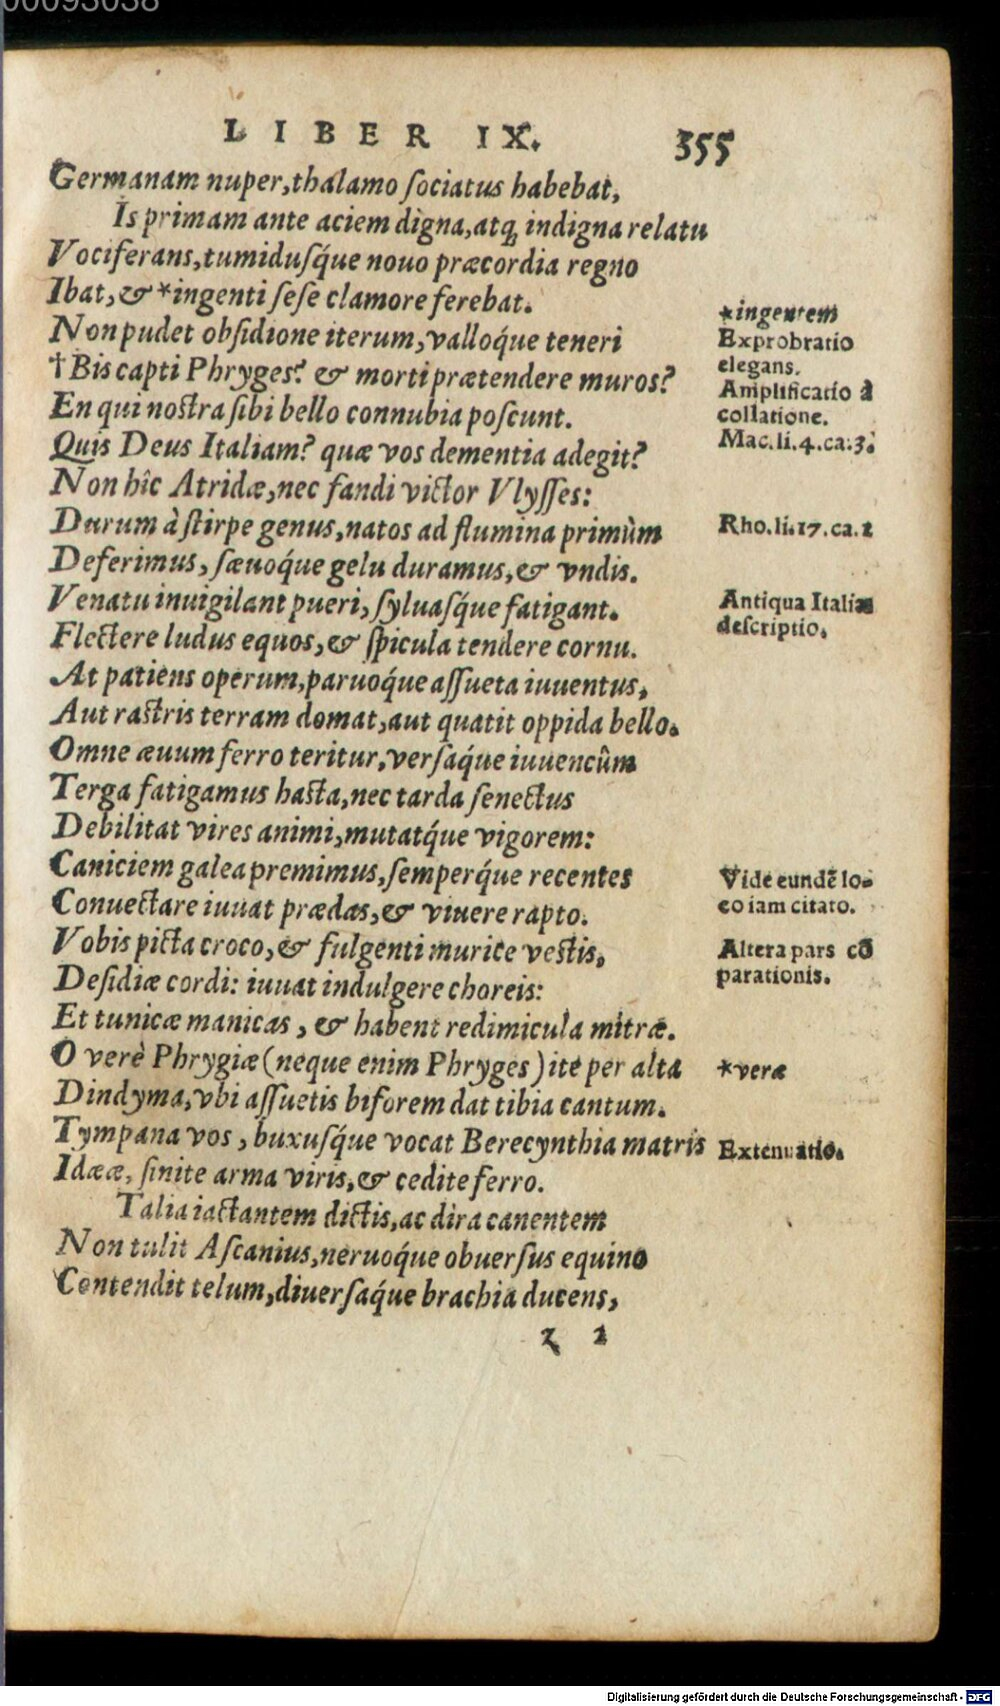 00093038
LIBER IX. 355
Germanam nuper, thalamo ſociatus habebat,
Is primam ante aciem digna, atq; indigna relatu
Vociferans, tumiduſq́ue nouo præcordia regno
Ibat, & *ingenti ſeſe clamore ferebat.
*ingentem
Non pudet obſidione iterum, valloq́ue teneri
Exprobratio
elegans.
†Bis capti Phryges? & morti prætendere muros?
Amplificatio à
collatione.
En qui noſtra ſibi bello connubia poſcunt.
Mac.li.4.ca.3.
Quis Deus Italiam? quæ vos dementia adegit?
Non hîc Atridæ, nec fandi victor Vlyſſes:
Durum à ſtirpe genus, natos ad flumina primùm
Rho.li.17.ca.2
Deferimus, ſæuoq́ue gelu duramus, & vndis.
Venatu inuigilant pueri, ſyluaſq́ue fatigant.
Antiqua Italiæ
deſcriptio.
Flectere ludus equos, & ſpicula tendere cornu.
At patiens operum, paruoq́ue aſſueta iuuentus,
Aut raſtris terram domat, aut quatit oppida bello.
Omne æuum ferro teritur, verſaq́ue iuuencûm
Terga fatigamus haſta, nec tarda ſenectus
Debilitat vires animi, mutatq́ue vigorem:
Caniciem galea premimus, ſemperq́ue recentes
Vide eundẽ lo-
co iam citato.
Conuectare iuuat prædas, & viuere rapto.
Vobis picta croco, & fulgenti murice veſtis,
Altera pars cõ
parationis.
Deſidiæ cordi: iuuat indulgere choreis:
Et tunicæ manicas, & habent redimicula mitræ.
O verè Phrygiæ (neque enim Phryges) ite per alta
*veræ
Dindyma, vbi aſſuetis biforem dat tibia cantum.
Tympana vos, buxuſq́ue vocat Berecynthia matris
Extenuatio.
Idææ, ſinite arma viris, & cedite ferro.
Talia iactantem dictis, ac dira canentem
Non tulit Aſcanius, neruoq́ue obuerſus equino
Contendit telum, diuerſaq́ue brachia ducens,
z 2
Digitalisierung gefördert durch die Deutsche Forschungsgemeinschaft - DFG